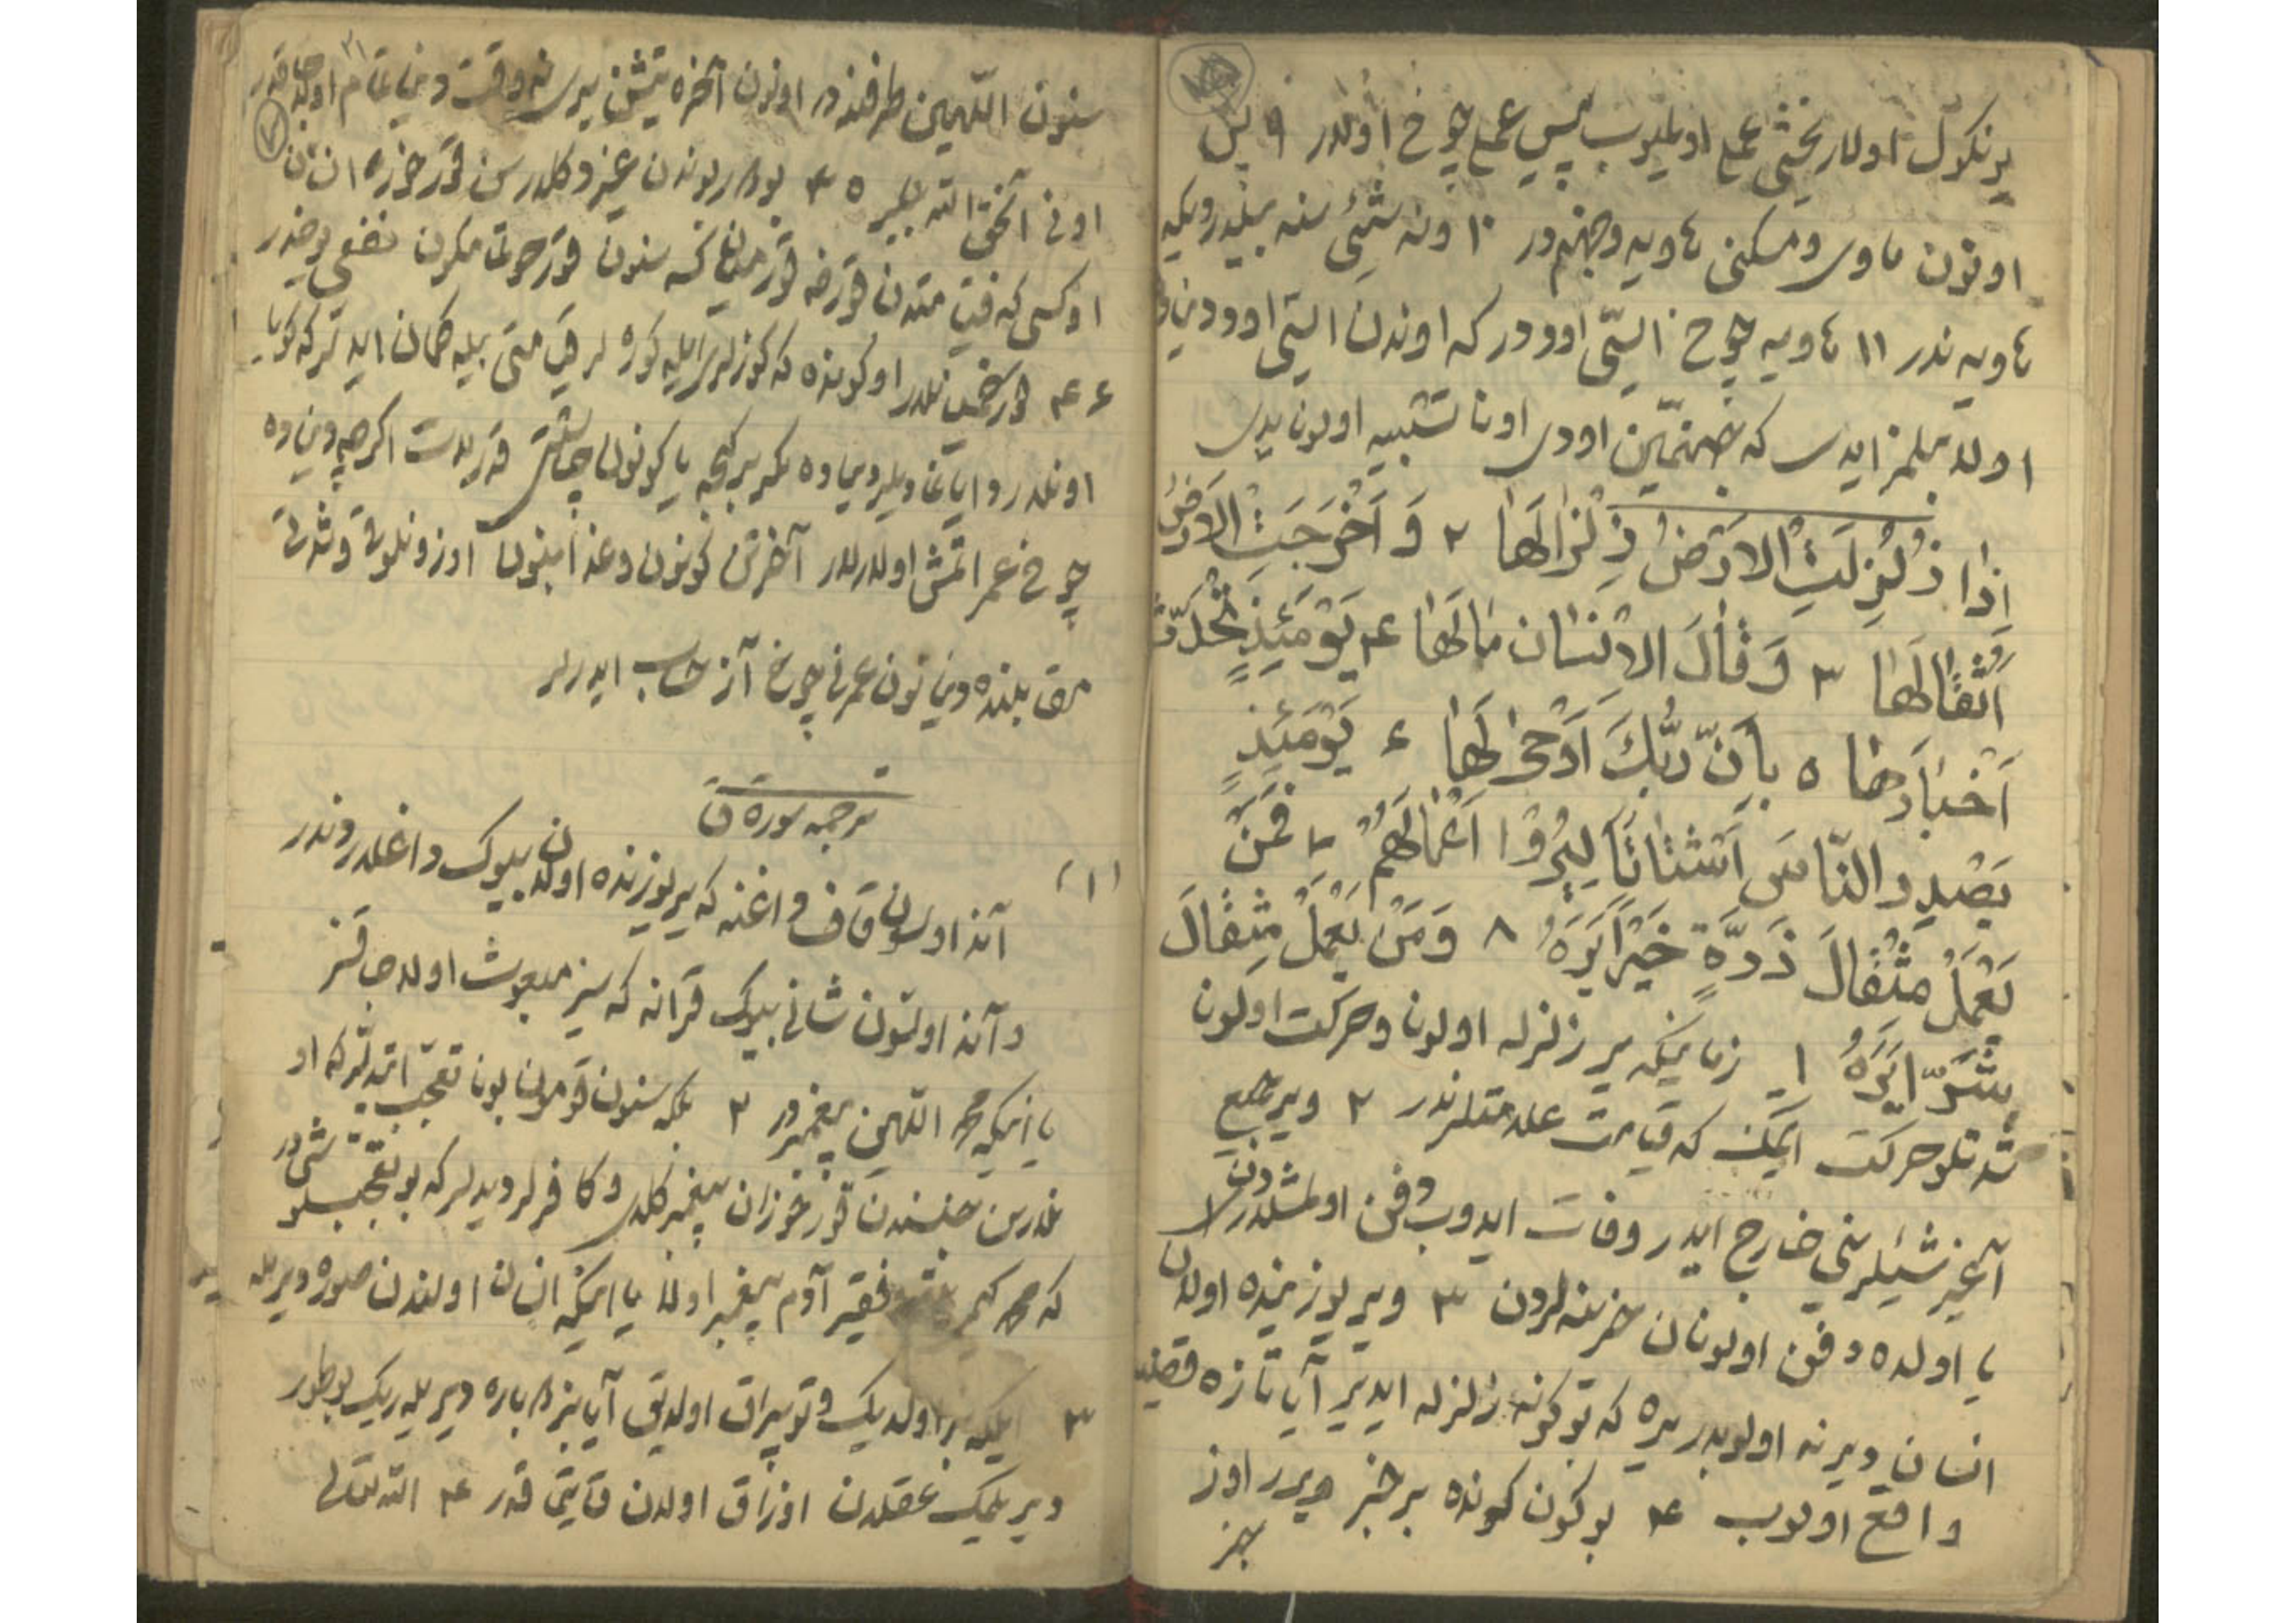 یونکول اولار یخشی عمل اولمیوب پیس عمل چوخ اولدر ۹ پس
اونون ماوی و مسکنی هاویه وجهنمدر ۱۰ ونه شیئی سنه بیلدیردیکه
هاویه ندر ۱۱ هاویه چوخ ایستی اوددر که اوندن ایستی اود
اولا بیلمز ایدی که جهنمین اودی اونا تشبیه اولونایدی
اِذا زُلْزِلَتِ الاَرْضُ زِلْزالَها ۲ وَ اَخْرَجَتِ الاَرْضُ
اَثْقالَها ۳ وَ قالَ الاِنْسان مالَها ۴ یَوْمَئِذٍ تُحَدِّثُ
اَخْبارَها ۵ بِاَنَّ رَبَّكَ اَوْحی لَها ۶ یَوْمَئِذٍ
یَصْدِر النّاسُ اَشْتاتاً لِیُرَوْا اَعْمالَهُم ۷ فَمَنْ
یَعْمَلْ مِثْقالَ ذَرَّةٍ خَیْراً یَرَهُ ۸ وَ مَنْ یَعْمَلْ مِثْقالَ
شَرّاً یَرَهُ ۱ زمانیکه یر زلزله اولون وحرکت اولون
شدتلو حرکت ایتمک که قیامت علامتلرندر ۲ ویر جمیع
آغیر شیئلرینی خارج ایدر وفات ایدوب دفن اولمشلردن
یا اولده دفن اولونان خزینه لردن ۳ ویر یوزینده اولان
انسان دیر نه اولوبدر یره که بوکونه زلزله ایدیر آیا تازه قضیه
واقع اولوب ۴ بوکون کونده یر خبر ویرر اوز
خبر
سنون اللهین طرفندر اونون آخره یتیشن یری نه وقت دنیا تمام اولاجاقدر
اونی آنجق الله بیلیر ۴۵ بودر بوندن غیر دکلدر سن قورخوزدان
اوکسی که قیامتدن قورخه قورخمیان کسه سنون قورخوتماقون نفعی یوخدر
۴۶ اوکونده که کوزلری ایله کوره لر قیامتی بیله کمان ایدرلر که کویا
اونلار دایانمادیلر دنیاده مکر بر کیجه یا کونون قدریدت اکرچه دنیاده
چوخ عمر ایتمش اولالار آخرتن کونون وعذابینون اوزونلوقی وشدتی
مقابلنده دنیانون عمرنی چوخ آز حساب ایدرلر
ترجمه سوره ق
(۱) آند اولسون قاف داغنه که یر یوزنده اولان بیوک داغلردندر
وآند اولسون شانی بیوک قرآنه که سیز مبعوث اولاجاقسز
یا اینکه محمد اللهین پیغمبریدر ۲ بلکه سنون قومون بونا تعجب ایتدیلر که او
نلارین جنسندن قورخوزان پیغمبر کلدی وکافرلر دیدیلر که بو تعجبلو شیدر
که محمد کیمی فقیر آدم پیغمبر اولا یا اینکه انسان اولندن صورا دیریله
۳ ایلیکه بز اولدیک و توپراق اولدیق آیا بز دوباره دیریلریک بو طور
دیریلمک عقلدن اوزاق اولان قایتماقدر ۴ الله تعالی